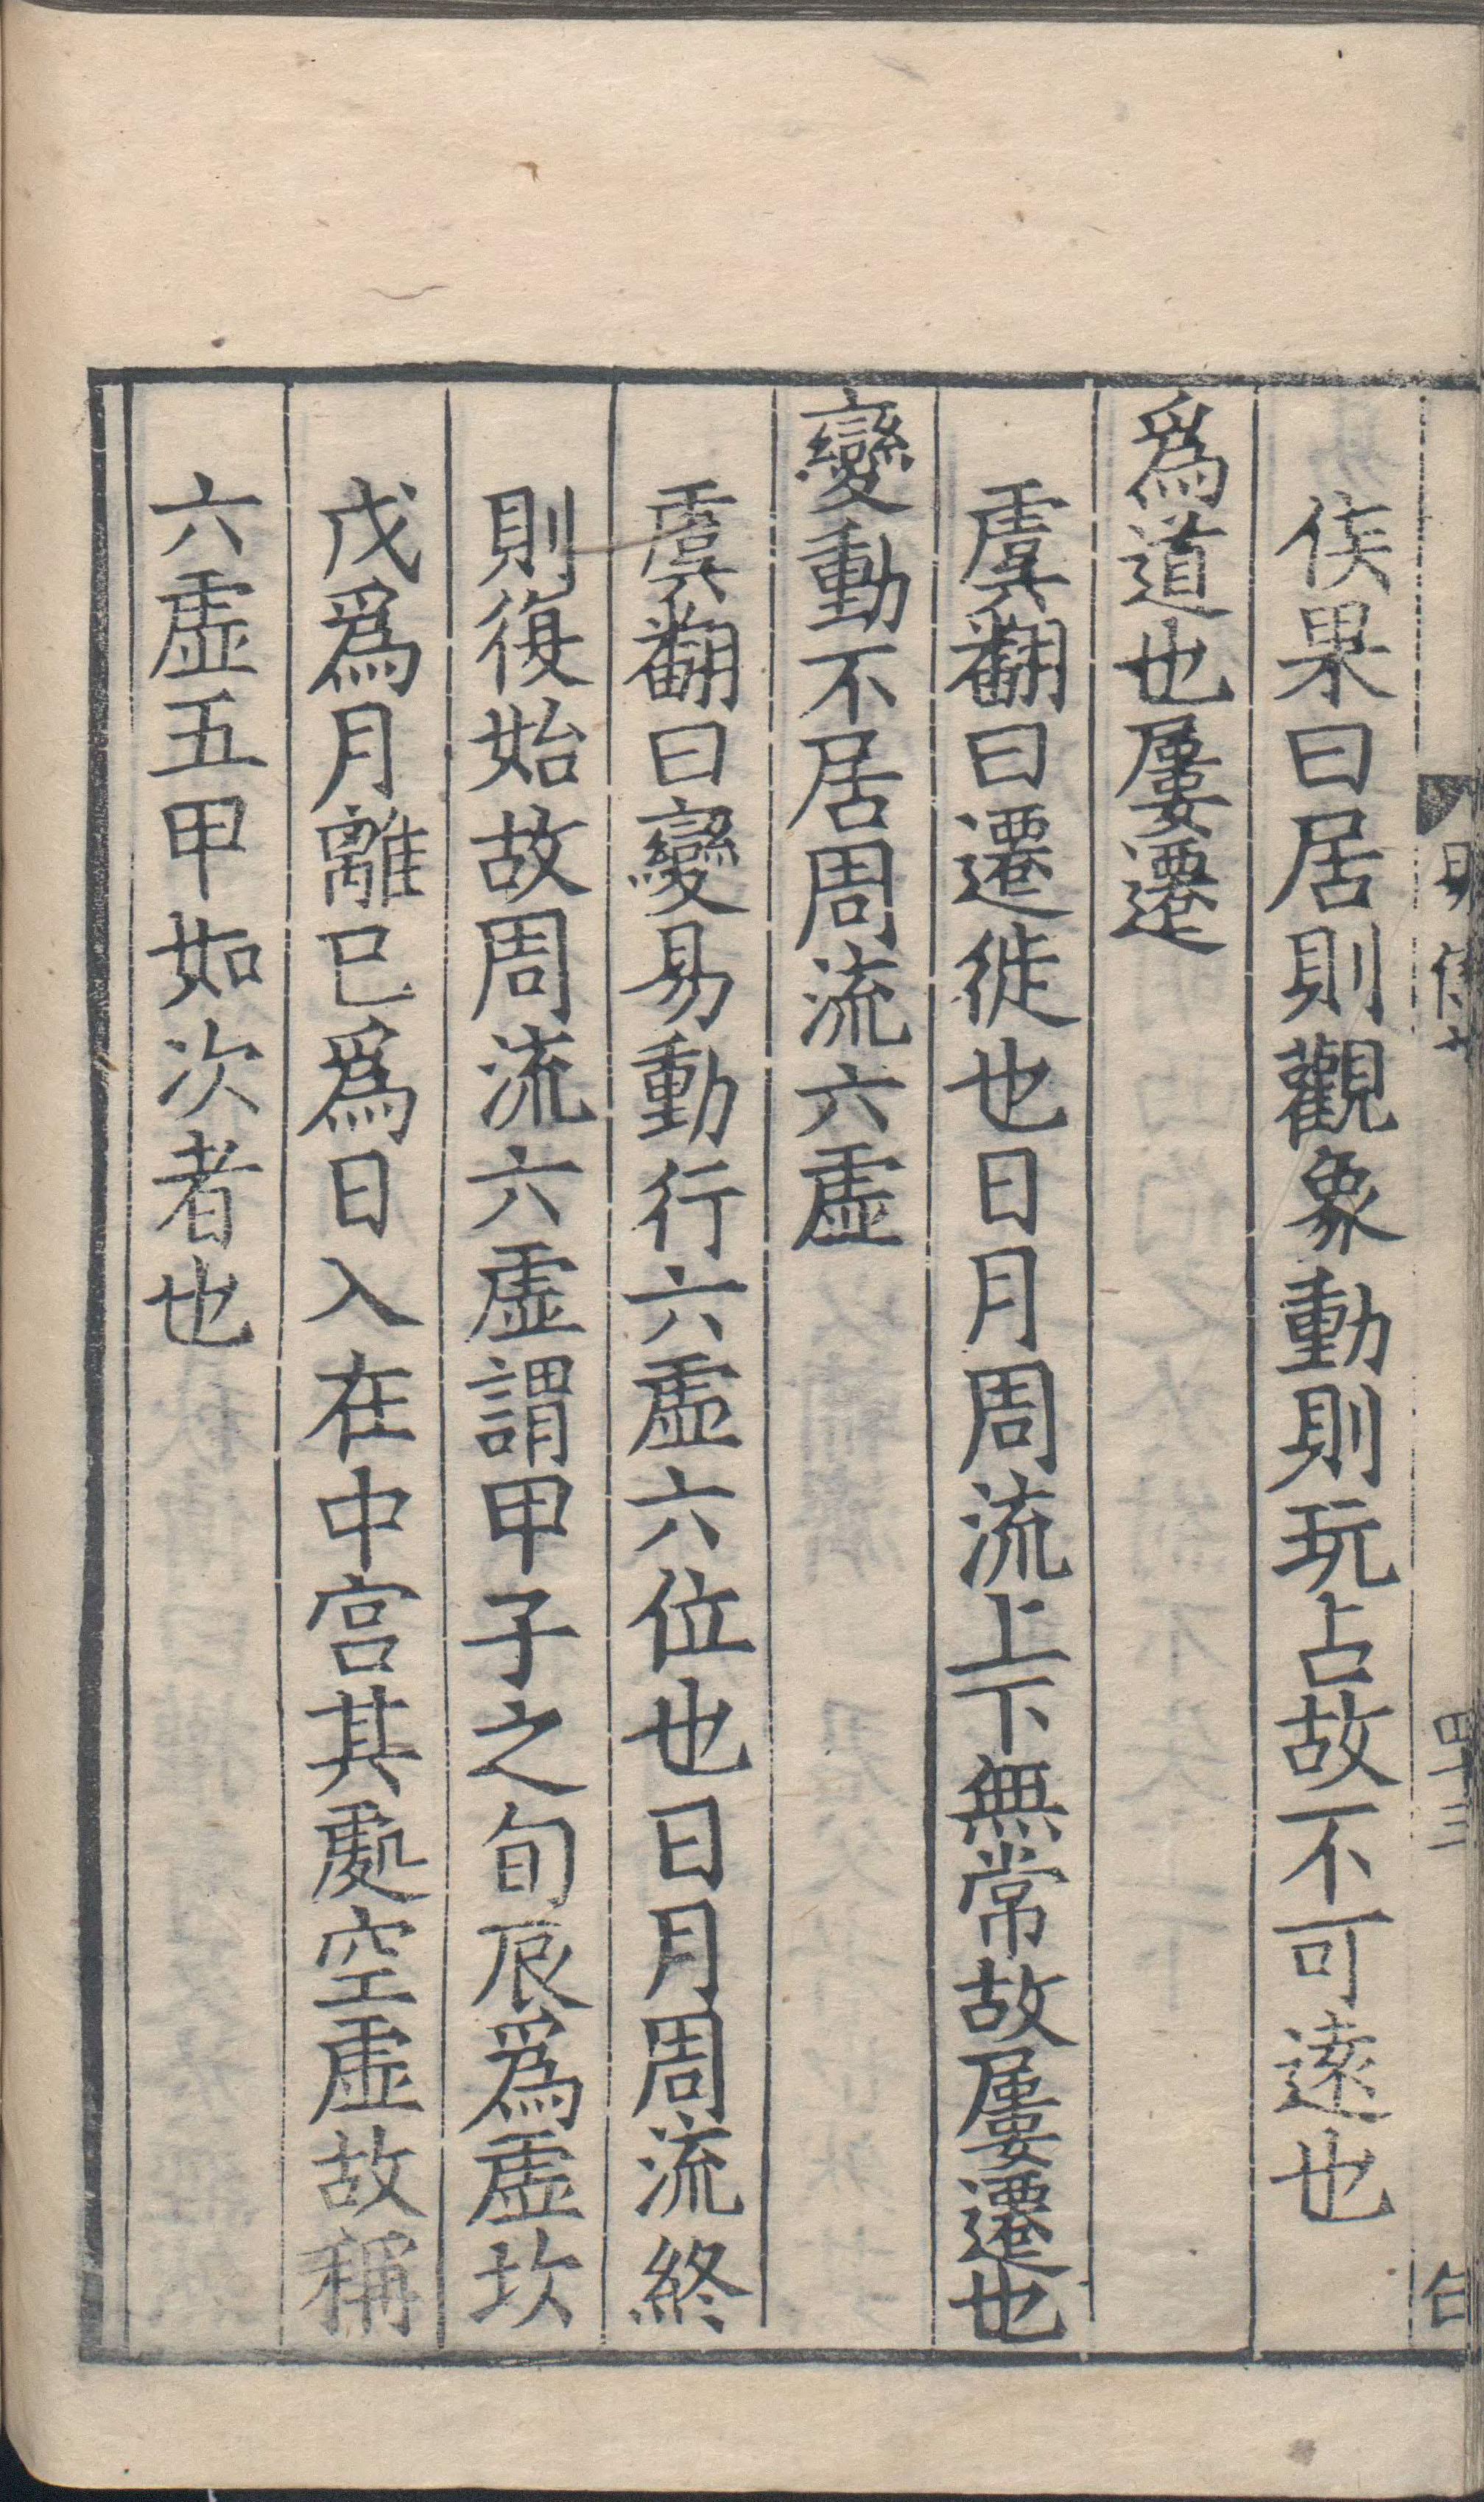 侯果曰居則觀象動則玩占故不可遠也
爲道也屢遷
虞翻曰遷徙也日月周流上下無常故屢遷也
變動不居周流六虛
虞翻曰變易動行六虛六位也日月周流終
則復始故周流六虛謂甲子之旬辰爲虛坎
戊爲月離巳爲日入在中宮其處空虛故稱
六虛五甲如次者也